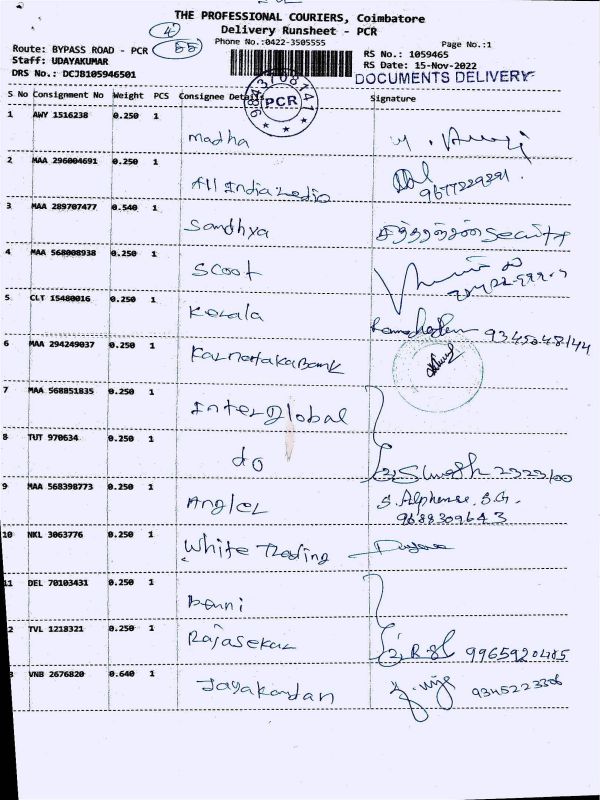 THE PROFESSIONAL COURIERS, Coimbatore
Delivery Runsheet - PCR
Phone No.:0422-3505555
Page No.:1
Route: BYPASS ROAD - PCR
Staff: UDAYAKUMAR
DRS No.: DCJB105946501
RS No.: 1059465
RS Date: 15-Nov-2022
DOCUMENTS DELIVERY
PCR
S No Consignment No Weight PCS Consignee Details Signature
1 AWY 1516238 0.250 1 Madha
2 MAA 296004691 0.250 1 All India Media 9677229391.
3 MAA 289707477 0.540 1 Sandhya Security
4 MAA 568008938 0.250 1 Scoot
5 CLT 15480016 0.250 1 Kerala 9345248144
6 MAA 294249037 0.250 1 Karnataka Bank
7 MAA 568851835 0.250 1 Inter global
8 TUT 970634 0.250 1 do
9 MAA 568398773 0.250 1 Angler S. Alphonse, S.G.
9688309643
10 NKL 3063776 0.250 1 White Trading
11 DEL 70103431 0.250 1 Benni
2 TVL 1218321 0.250 1 Rajasekar 9965920405
VNB 2676820 0.640 1 Jayakandan 9345223306